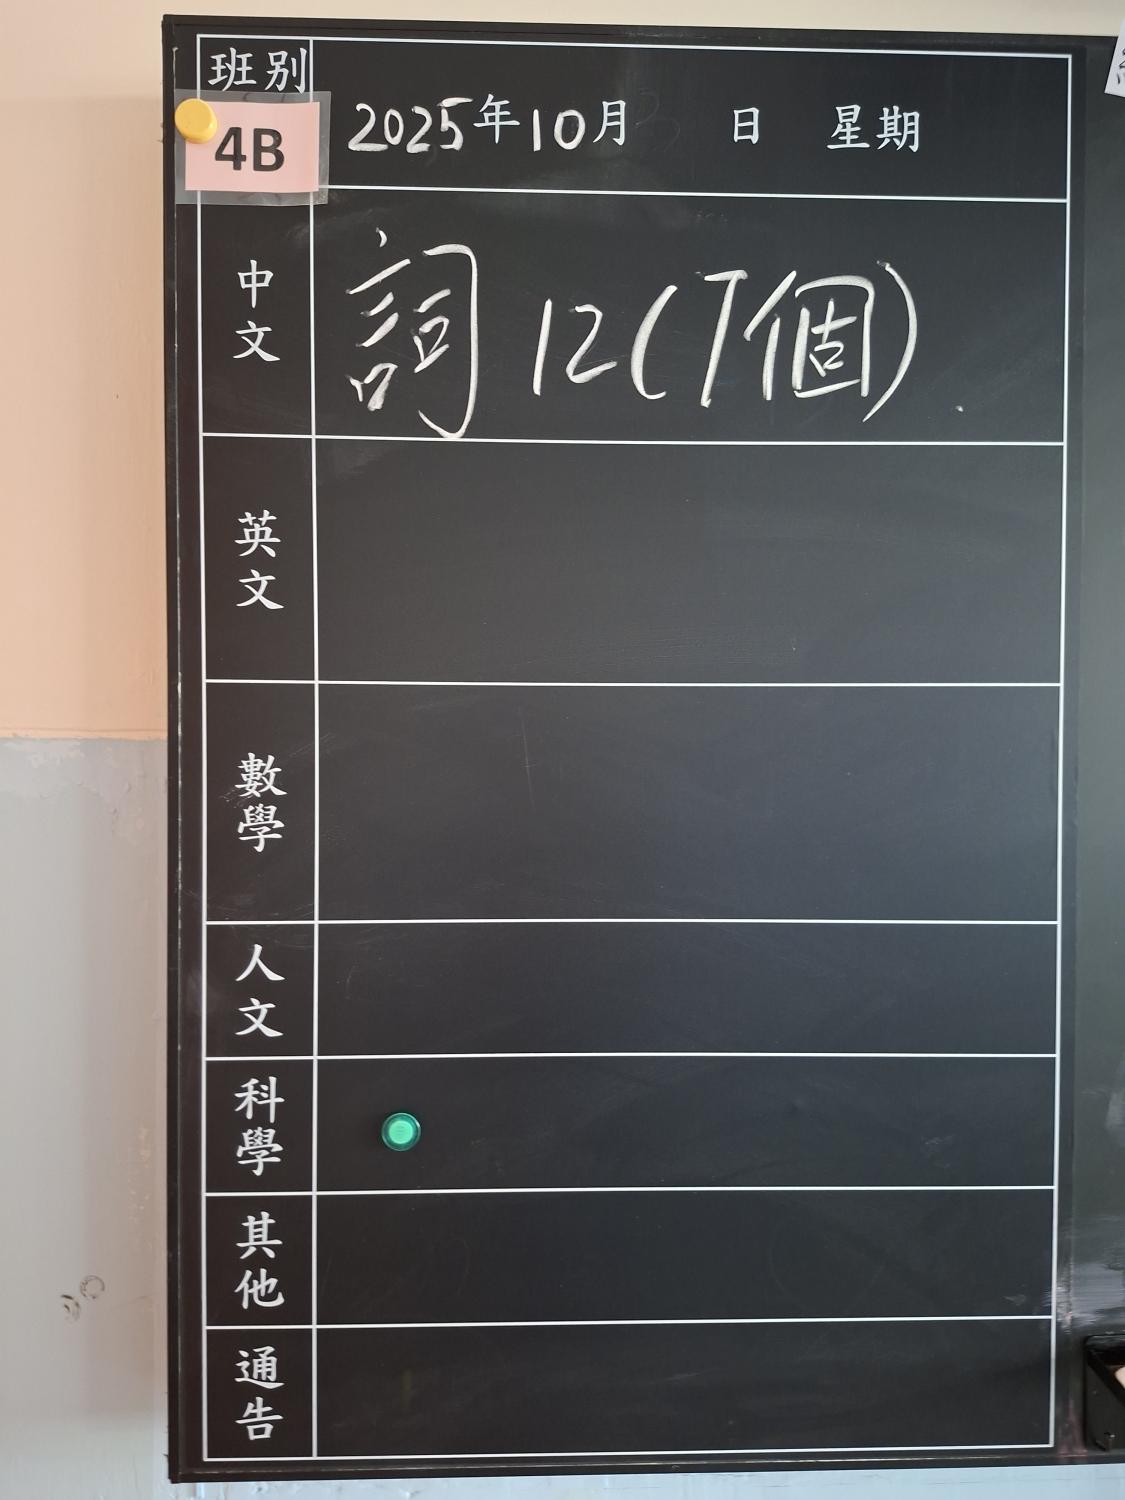 班別
4B
2025年10月 日 星期
中文
詞12(7個).
英文
數學
人文
科學
其他
通告